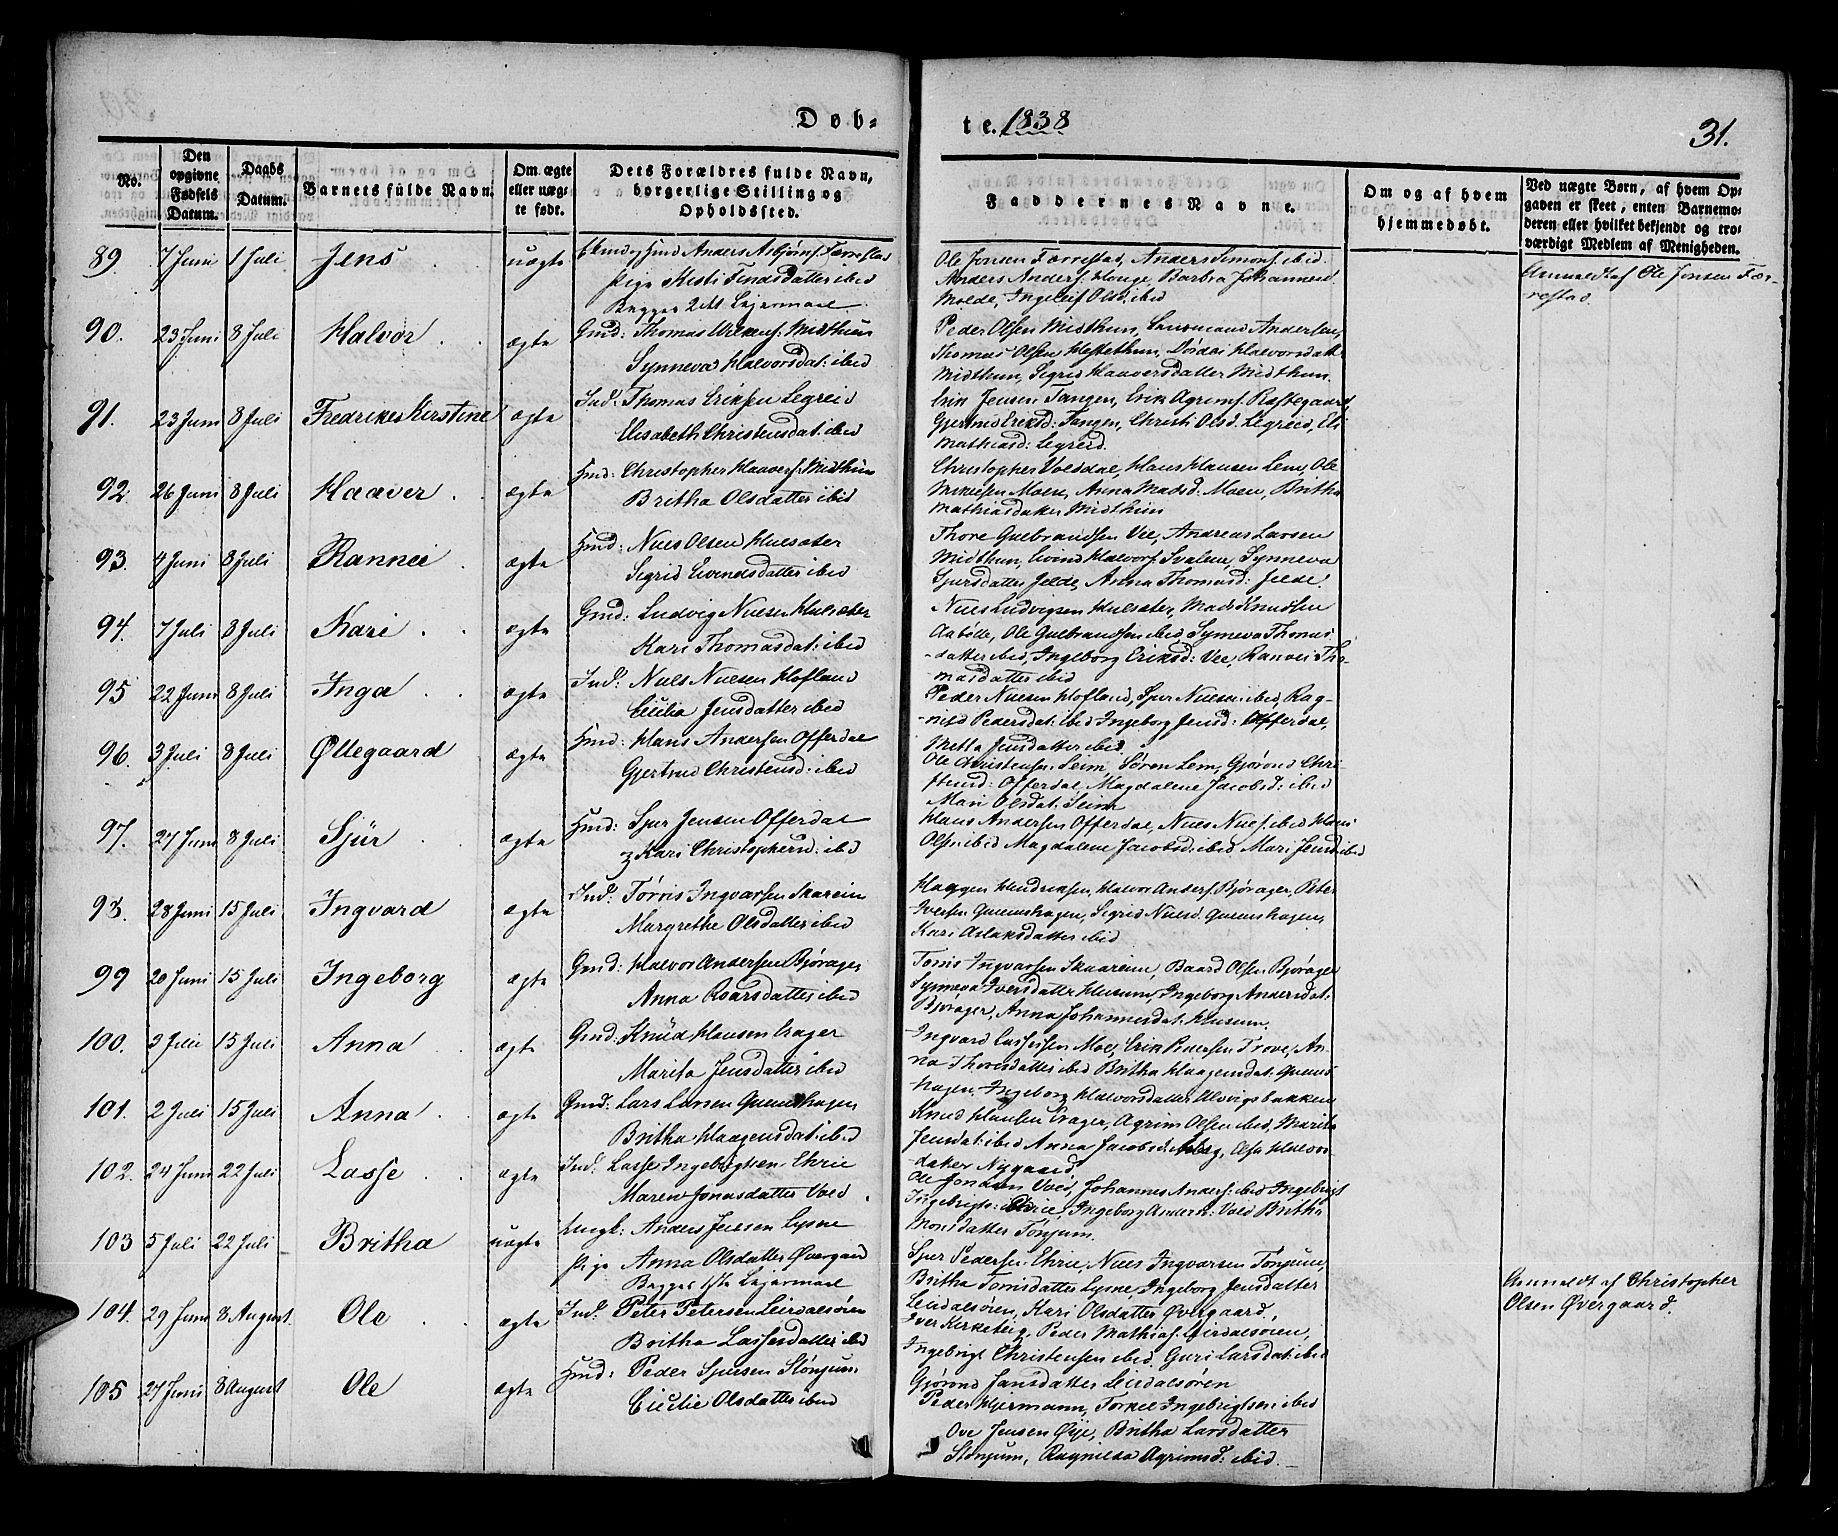 Døb-
te. 1838
31.
No.
Den opgivne Fødsels Datum.
Daabs Datum.
Barnets fulde Navn.
Om ægte eller uægte født.
Dets Forældres fulde Navn, borgerlige Stilling og Opholdssted.
Faddernes Navne.
Om og af hvem hjemmedøbt.
Ved uægte Børn, af hvem Opgaven er skeet, enten Barnemoderen eller hvilket bekjendt og troværdigt Medlem af Menigheden.
89. 7 Juni 1 Juli Jens uægte
Anders Asbjørns: Færrestad
Pige Kisti Findsdatter ibid
Begges 2det Leiermaal
Ole Jonsen Færrestad, Anders Simons: ibid
Anders Anders: Hauge, Barbra Johannesd
Molde, Ingeleif Olsd: ibid
Anmeldt af Ole Jonsen Fær-
restad
90. 23 Juni 8 Juli Halvor ægte
Gmd: Thomas Midthun
Synneva Halvorsdat: ibid
Peder Olsen Midthun, Andersen,
Thomas Olsen Hestethun, Dordei Halvorsdatt:
Midthun, Sigrid Haaversdatter Midthun.
91. 23 Juni 8 Juli Fredrikes Kirstine ægte
Ind: Thomas Eriksen Legreid
Elisabeth Christensdat: ibid
Erik Jensen Tangen, Erik Agrims: Raftegaard
Gjertrud Eriksd: Tangen, Christi Olsd: Legreid, Eli
Mathiasd: Legreid
92. 26 Juni 8 Juli Haaver ægte
Hmd: Christopher Haavers: Midthun
Britha Olsdatter ibid
Christopher Voldal, Hans Hansen Lem, Ole
Moen, Anna Madsd: Moen, Britha
Mathiasdatter Midthun
93. 4 Juni 8 Juli Rannei ægte
Hmd: Niels Olsen Hulsæter
Sigrid Eivendsdatter ibid
Thore Gulbrandsen Vee, Andreas Larsen
Midthun, Eivind Halvors: Svalem, Synneva
Sjursdatter Jelde, Anna Thomasd: Jelde.
94. 7 Juli 8 Juli Kari ægte
Gmd: Ludvig Nielsen Hulsæter
Kari Thomasdat: ibid
Niels Ludvigsen Hulsæter, Mads Knudsen
Aabølle, Ole Gulbrandsen ibid Synneva Thomas
datter ibid, Ingeborg Eriksd: Vee, Ranvei Tho-
masdatter ibid
95 22 Juni 8 Juli Inga ægte
Ind: Niels Nielsen Hofland
Cicilia Jensdatter ibid
Peder Nielsen Hofland, Sjur Nielsen ibid, Rag-
nild Pedersdat: ibid Ingeborg Jensd: Offerdal,
Metta Jensdatter ibid
96. 3 Juli 8 Juli Øllegaard ægte
Hmd: Hans Andersen Offerdal
Gjertrud Christensd: ibid
Ole Christensen Seim, Søren Lem, Gjørond Chri-
stensd: Offerdal, Magdalene Jacobsd: ibid
Mari Olsdat: Seim
97. 27 Juni 8 Juli Sjur ægte
Hmd: Sjur Jensen Offerdal
Kari Christophersd: ibid
Hans Andersen Offerdal, Niels Niels: ibid Hans
Olsen ibid Magdalene Jacobsd: ibid Mari Jensd: ibid
98. 28 Juni 15 Juli Ingvard ægte
Ind: Torris Ingvarsen Skareim
Margrethe Olsdatter ibid
Haagen Hendriksen, Halvor Anders: Bjørager, Peter
Iversen Qvamshagen, Sigrid Nielsd. Qvamshagen,
Kari Aslaksdatter ibid
99 20 Juni 15 Juli Ingeborg ægte
Gmd: Halvor Andersen Bjørager
Anna Roarsdatter ibid
Torris Ingvarsen Skaareim, Baard Olsen Bjørager
Synneva Iversdatter Husum, Ingeborg Andersdat:
Bjørager, Anna Johannesdat: Husum.
100. 3 Juli 15 Juli Anna ægte
Gmd: Knud Hansen Crager
Marita Jensdatter ibid
Ingvard Lassesen Moe, Erik Pedersen Trove, An-
na Thoresdatter ibid Britha Haagensdat: Qvams
hagen, Ingeborg Halvorsdatter Alvigsbakken
101. 2 Juli 15 Juli Anna ægte
Gmd: Lars Larsen Qvamshagen
Britha Haagensdat: ibid
Knud Hansen Crager, Agrim Olsen ibid, Marita
Jensdat: ibid Anna Jacobsd: Hov-
datter Nygaard
102. 24 Juni 22 Juli Lasse ægte
Ind: Lasse Ingebrigtsen Ehrie
Maren Jonasdatter Vold
Ole Jonasen Vold, Johannes Anders: ibid Ingebrigt
Ingebrigts: Ehrie, Ingeborg Andersd: Vold Britha
Monsdatter Tønjum.
103 5 Juli 22 Juli Britha uægte
Ungk: Anders Jensen Lysne
Pige Anna Olsdatter Øvergaard
Begges 1ste Leiermaal
Sjur Pedersen Ehrie, Niels Ingvarsen Tønjum,
Britha Torrisdatter Lysne, Ingeborg Jensdatter
Leirdalsøren, Kari Olsdatter Øvergaard,
Anmeldt af Christopher
Olsen Øvergaard.
104. 29 Juni 8 August Ole ægte
Ind: Peter Petersen Leirdalsøren
Britha Lassesdatter ibid
Iver Kirketeig, Peder Mathias: Leirdalsøren,
Ingebrigt Christensen ibid. Guri Larsdat: ibid
Gjørond Jansdatter Leirdalsøren
105 27 Juni 8 August Ole ægte
Hmd: Peder Sjursen Stønjum
Cicilie Olsdatter ibid
Peder Hjermann, Torkel Ingebrigtsen ibid
Ove Jensen Øije, Britha Larsdatter
Stønjum, Ragnilda Agrimsd: ibid.